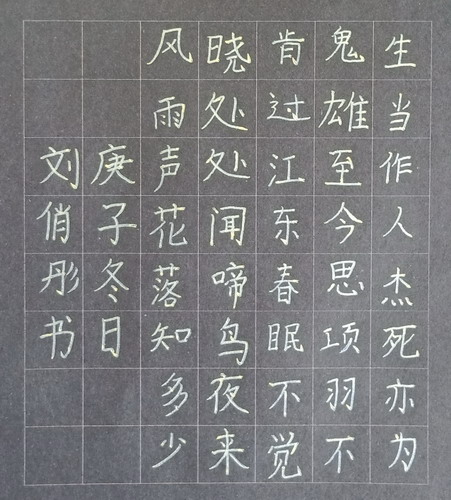 生当作人杰死亦为
鬼雄至今思项羽不
肯过江东春眠不觉
晓处处闻啼鸟夜来
风雨声花落知多少
庚子冬日
刘俏彤书